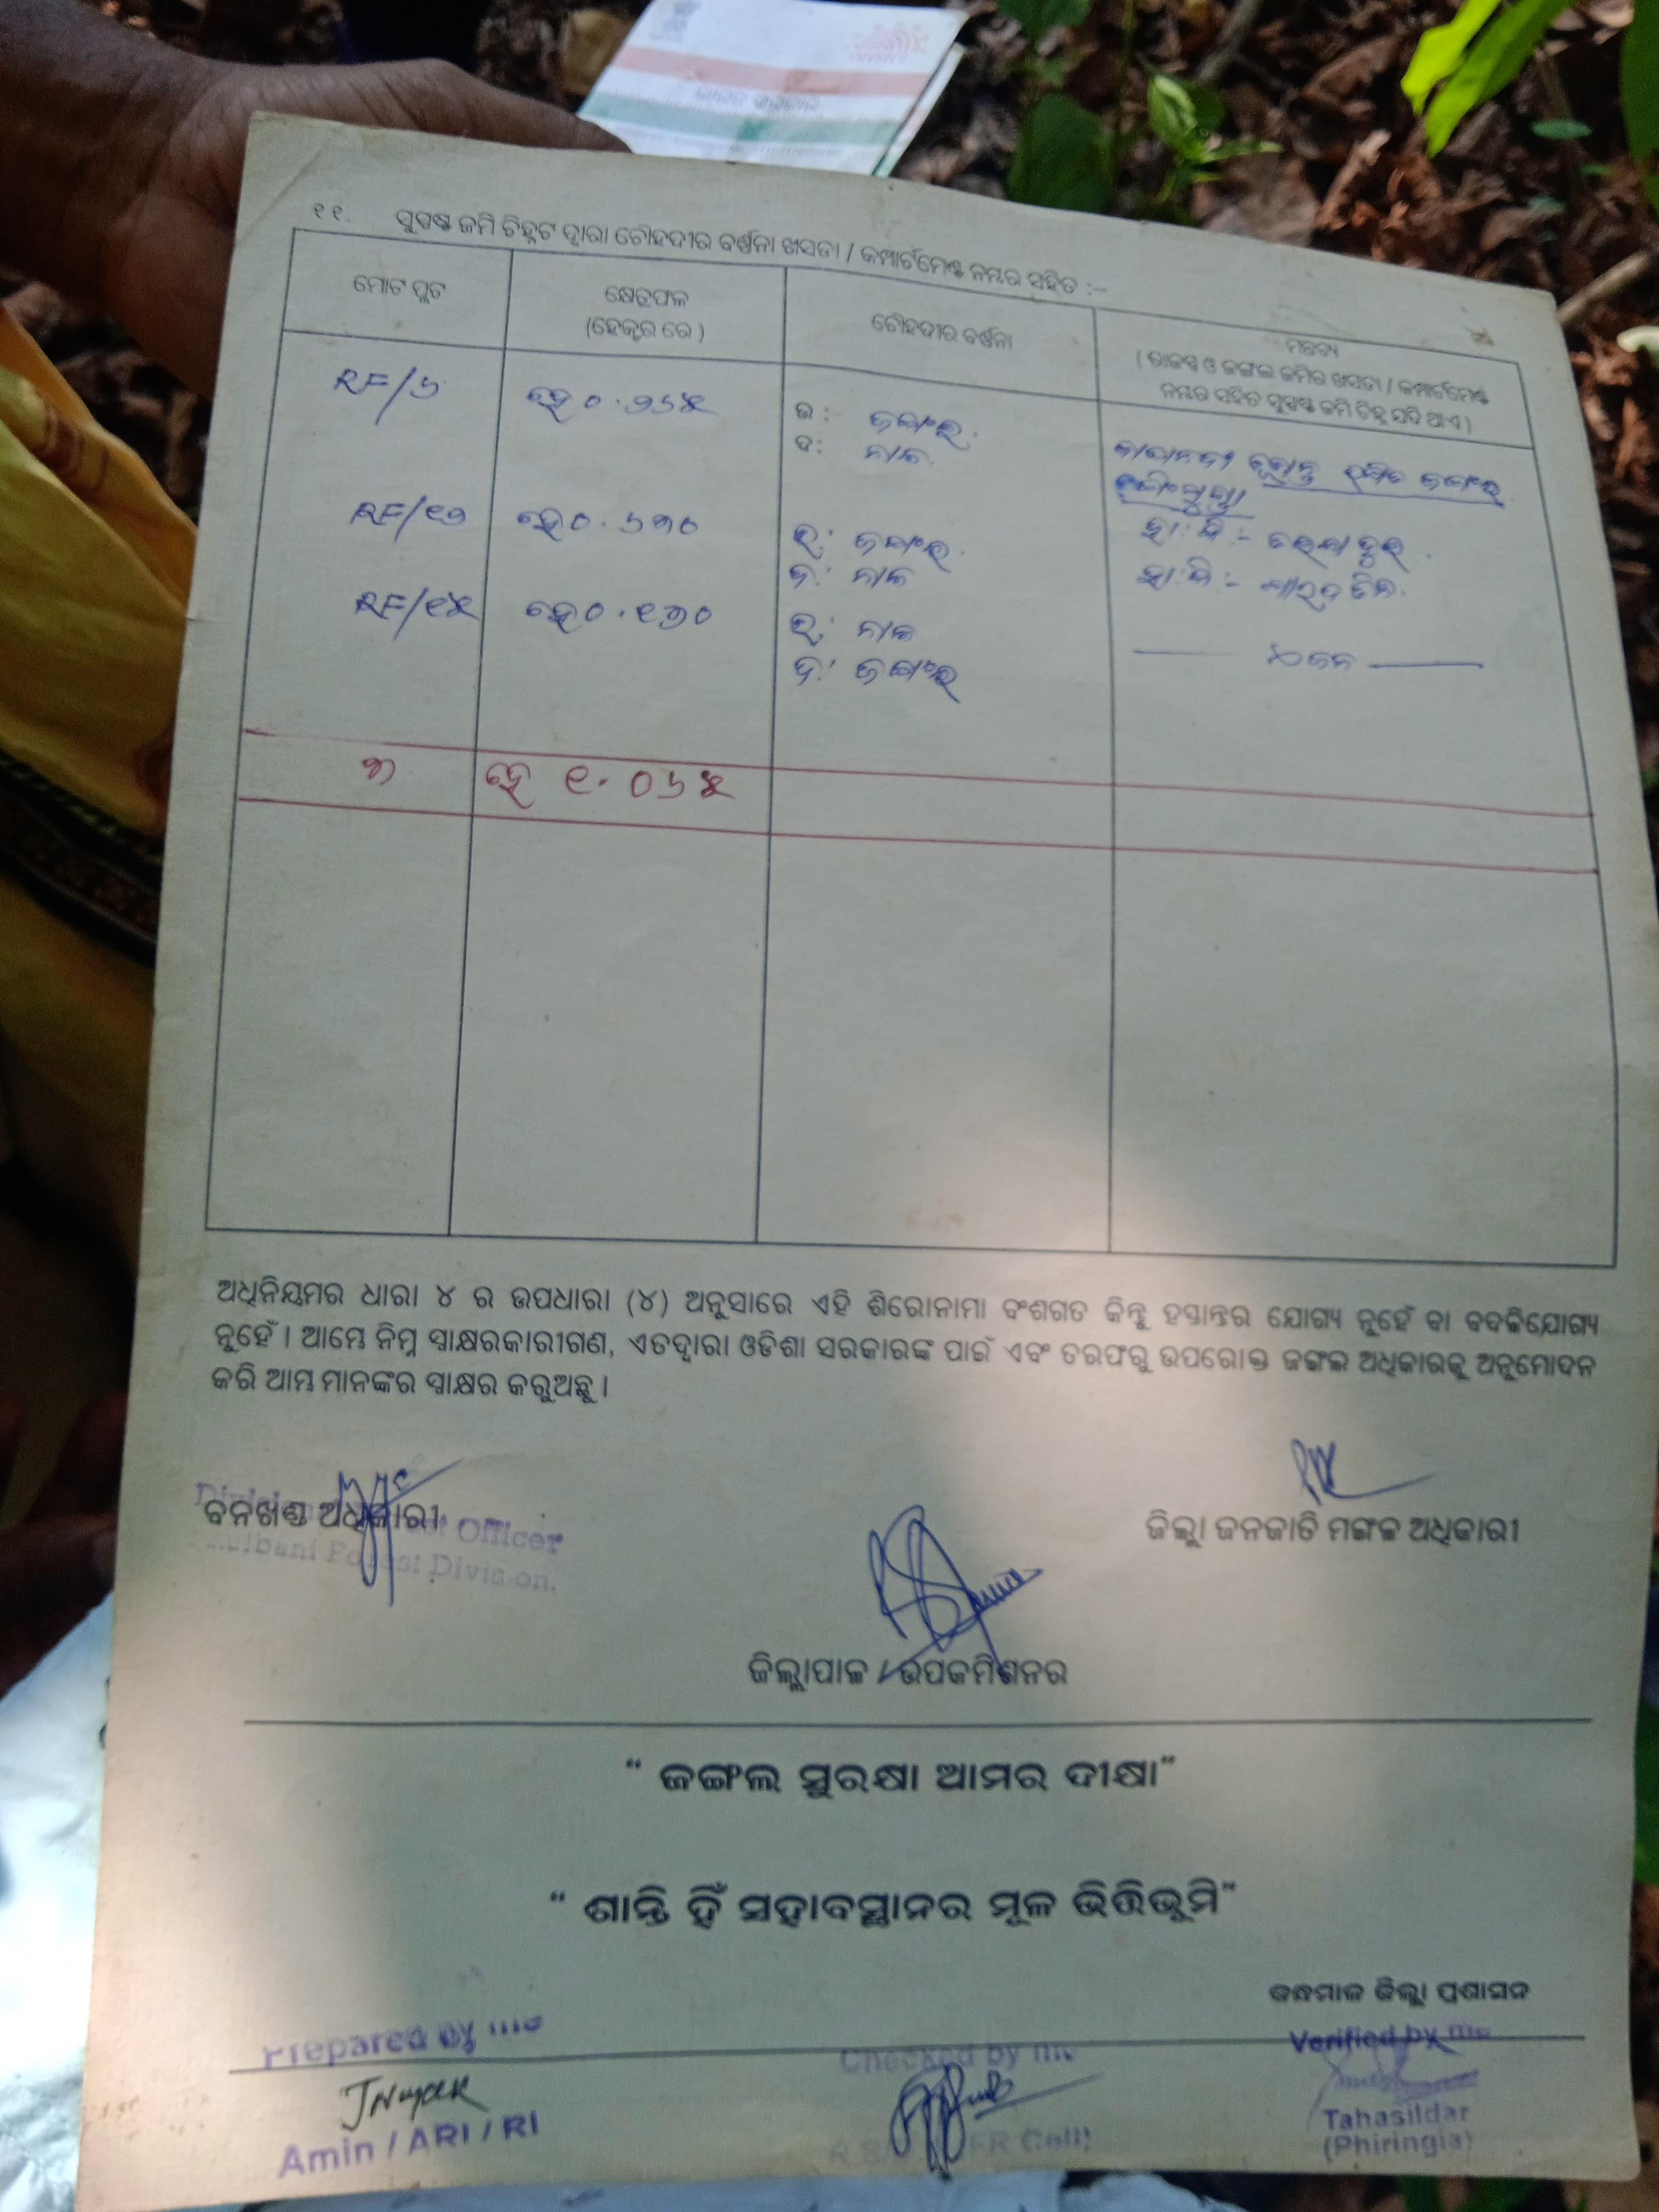 ଭାରତ ସରକାର
୧୧. ସୁସ୍ପଷ୍ଟ ଜମି ଚିହ୍ନଟ ଦ୍ୱାରା ଚୌହଦୀର ବର୍ଣ୍ଣନା ଖସଡା / କମ୍ପାର୍ଟମେଣ୍ଟ ନମ୍ବର ସହିତ :–
ମୋଟ ପ୍ଲଟ
କ୍ଷେତ୍ରଫଳ
(ହେକ୍ଟର ରେ)
ଚୌହଦୀର ବର୍ଣ୍ଣନା
ମନ୍ତବ୍ୟ
(ରାଜସ୍ୱ ଓ ଜଙ୍ଗଲ ଜମିର ଖସଡା / କମ୍ପାର୍ଟମେଣ୍ଟ
ନମ୍ବର ସହିତ ସୁସ୍ପଷ୍ଟ ଜମି ଚିହ୍ନ ଯଦି ଥାଏ)
RF/୬ ହେ ୦.୨୬୫ ଉ:- ଜଙ୍ଗଲ
ଦ: ନାଳ
ଜଙ୍ଗଲ
RF/୧୨ ହେ ୦.୬୩୦ ଉ: ଜଙ୍ଗଲ
ଦ: ନାଳ
RF/୧୫ ହେ ୦.୧୭୦ ଉ: ନାଳ
ଦ: ଜଙ୍ଗଲ
୩ ହେ ୧.୦୬୫
ଅଧିନିୟମର ଧାରା ୪ ର ଉପଧାରା (୪) ଅନୁସାରେ ଏହି ଶିରୋନାମା ବଂଶଗତ କିନ୍ତୁ ହସ୍ତାନ୍ତର ଯୋଗ୍ୟ ନୁହେଁ ବା ବଦଳିଯୋଗ୍ୟ
ନୁହେଁ । ଆମ୍ଭେ ନିମ୍ନ ସ୍ୱାକ୍ଷରକାରୀଗଣ, ଏତଦ୍ୱାରା ଓଡିଶା ସରକାରଙ୍କ ପାଇଁ ଏବଂ ତରଫରୁ ଉପରୋକ୍ତ ଜଙ୍ଗଲ ଅଧିକାରକୁ ଅନୁମୋଦନ
କରି ଆମ୍ଭ ମାନଙ୍କର ସ୍ୱାକ୍ଷର କରୁଅଛୁ ।
ବନଖଣ୍ଡ ଅଧିକାରୀ
Officer
Forest Division.
ଜିଲ୍ଲା ଜନଜାତି ମଙ୍ଗଳ ଅଧିକାରୀ
ଜିଲ୍ଲାପାଳ / ଉପକମିଶନର
“ ଜଙ୍ଗଲ ସୁରକ୍ଷା ଆମର ଦୀକ୍ଷା”
“ ଶାନ୍ତି ହିଁ ସହାବସ୍ଥାନର ମୂଳ ଭିତ୍ତିଭୂମି”
କନ୍ଧମାଳ ଜିଲ୍ଲା ପ୍ରଶାସନ
Prepared by me
Checked by me
Verified by me
JNayak
Amin / ARI / RI
Tahasildar
(Phiringia)